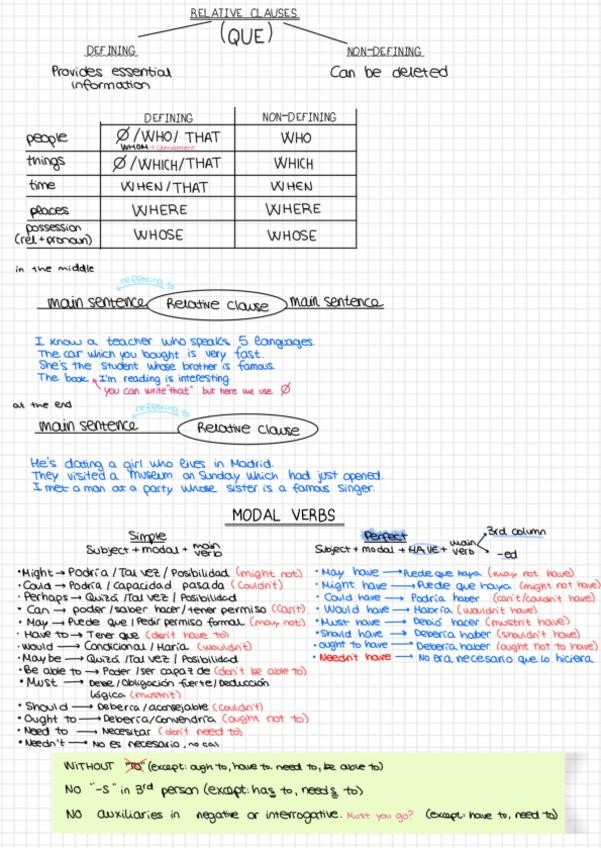 RELATIVE CLAUSES
(QUE)
DEFINING
NON-DEFINING
Provides essential
information
Can be deleted
DEFINING NON-DEFINING
people Ø/WHO/THAT WHO
WHOM + complement
things Ø/WHICH/THAT WHICH
time WHEN/THAT WHEN
places WHERE WHERE
possession
(rel+pronoun) WHOSE WHOSE
in the middle
reffering to
main sentence Relative clause main sentence
I know a teacher who speaks 5 languages.
The car which you bought is very fast.
She's the student whose brother is famous.
The book I'm reading is interesting
you can write "that" but here we use Ø
at the end
reffering to
main sentence Relative clause
He's dating a girl who lives in Madrid.
They visited a museum on Sunday which had just opened.
I met a man at a party whose sister is a famous singer.
MODAL VERBS
Simple
Subject + modal + main verb
• Might → Podría/Tal vez/Posibilidad (might not)
• Could → Podría/Capacidad pasada (couldn't)
• Perhaps → Quizá/Tal vez/Posibilidad
• Can → poder/saber hacer/tener permiso (can't)
• May → Puede que/Pedir permiso formal (may not)
• Have to → Tener que (don't have to)
• Would → Condicional/Haría (wouldn't)
• May be → Quizá/Tal vez/Posibilidad
• Be able to → Poder/ser capaz de (don't be able to)
• Must → Debe/Obligación fuerte/Deducción
lógica (mustn't)
• Should → Debería/aconsejable (couldn't)
• Ought to → Debería/Convendría (ought not to)
• Need to → Necesitar (don't need to)
• Needn't → No es necesario, no cal
Perfect
Subject + modal + HAVE + main verb
3rd column
-ed
• May have → Puede que haya (may not have)
• Might have → Puede que haya (might not have)
• Could have → Podría haber (can't/couldn't have)
• Would have → Habría (wouldn't have)
• Must have → Debió hacer (mustn't have)
• Should have → Debería haber (shouldn't have)
• ought to have → Debería haber (ought not to have)
• Needn't have → No era necesario que lo hiciera
WITHOUT "TO" (except: ough to, have to, need to, be able to)
NO "-S" in 3rd person (except: has to, needs to)
NO auxiliaries in negative or interrogative. Must you go? (except: have to, need to)